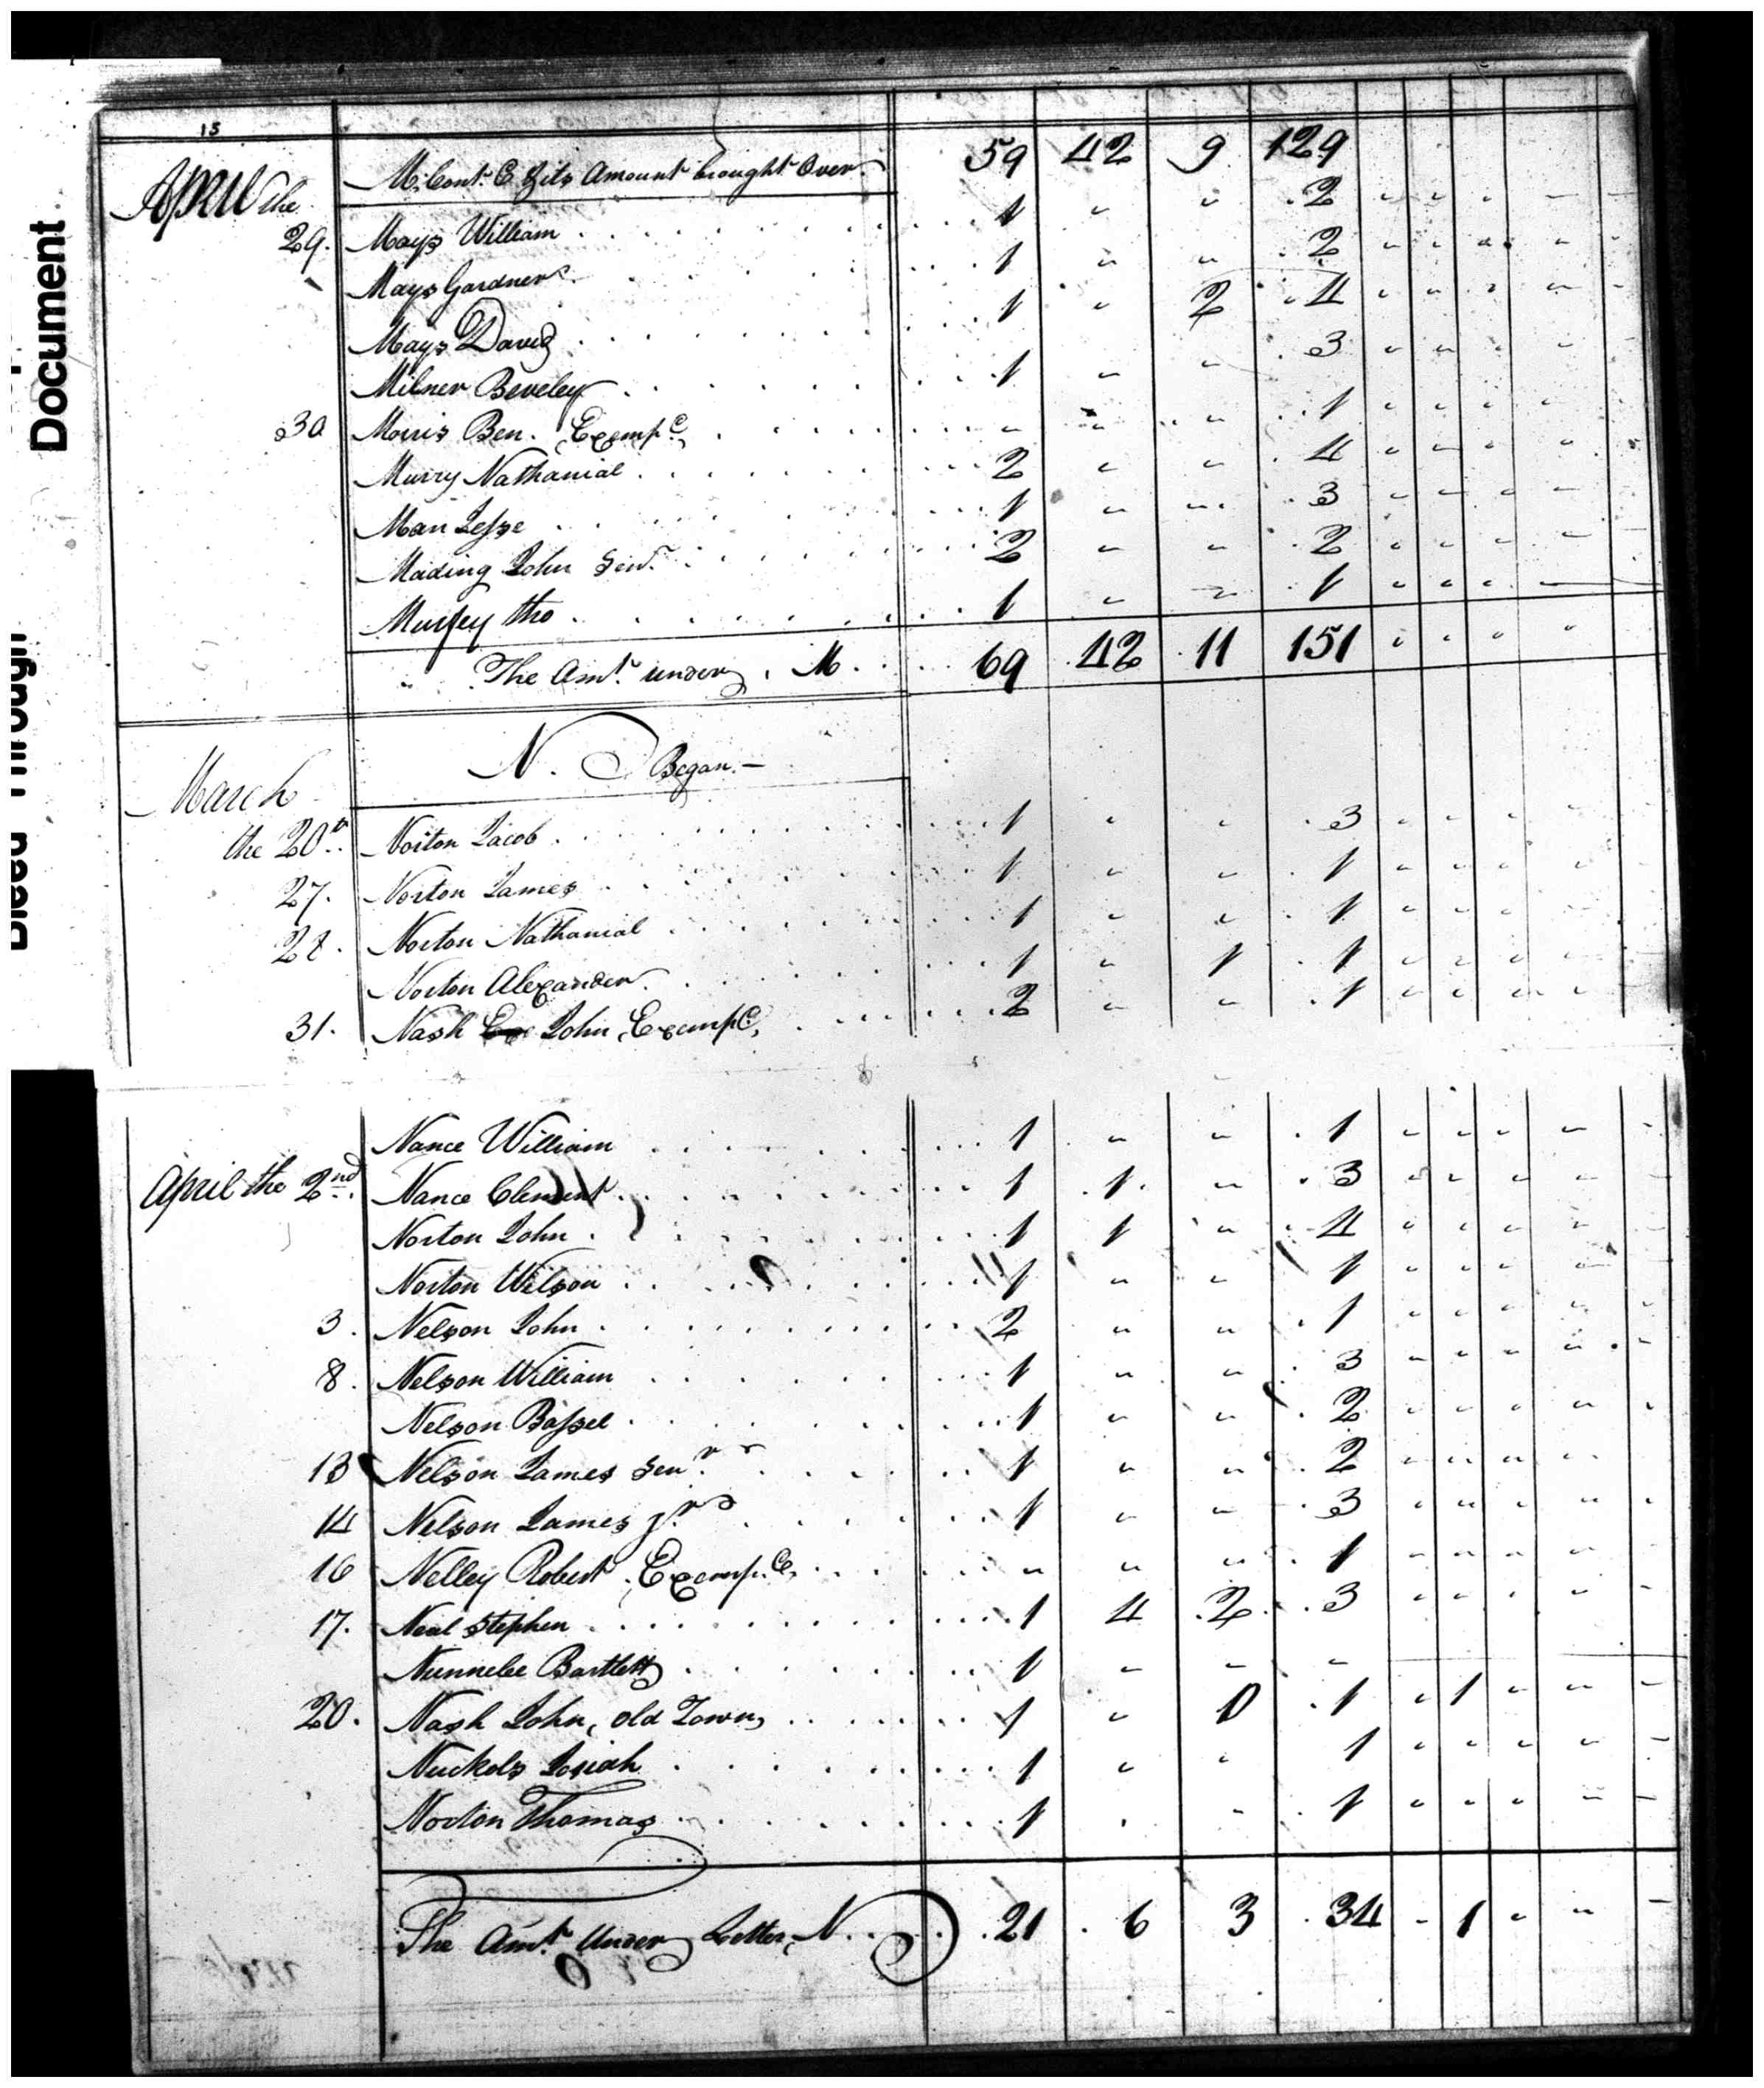 Document
15
M. Cont. & its Amount brought Over. 59 42 9 129
April the
29. Mays William 1 " " 2 " " " "
Mays Gardner 1 " " 2 " " " "
Mays David 1 " 2 4 " " " "
Milner Beveley 1 " " 3 " " " "
30 Morris Ben. Exempd. " " " 1 " " " "
Murry Nathanial 2 " " 4 " " " "
Man Jesse 1 " " 3 " " " "
Mading John Senr. 2 " " 2 " " " "
Murfey tho 1 " " 1 " " " "
The Amt. under M. 69 42 11 151 " " " "
N. Began.
March
the 20th. Norton Jacob 1 " " 3 " " " "
27. Norton James 1 " " 1 " " " "
28. Norton Nathanial 1 " " 1 " " " "
Norton Alexander 1 " 1 1 " " " "
31. Nash John Exempd. 2 " " 1 " " " "
Nance William 1 " " 1 " " " " "
April the 2nd. Nance Clement 1 1 " 3 " " " "
Norton John 1 1 " 4 " " " "
Norton Wilson 1 " " 1 " " " "
3. Nelson John 2 " " 1 " " " " "
8. Nelson William 1 " " 3 " " " " "
Nelson Bassel 1 " " 2 " " " " "
13 Nelson James Senr. 1 " " 2 " " " "
14 Nelson James Jr. 1 " " 3 " " " " "
16 Nelley Robert Exempd. " " " 1 " " " "
17. Neal Stephen 1 4 2 3 " " " " "
Nunnelee Bartlett 1 " " "
20. Nash John, old Town, 1 " 0 1 " 1 " " "
Nuckols Josiah 1 " " 1 " " " " "
Norton Thomas 1 " " 1 " " " " "
The Amt. Under Letter N. 21 6 3 34 " 1 " " "